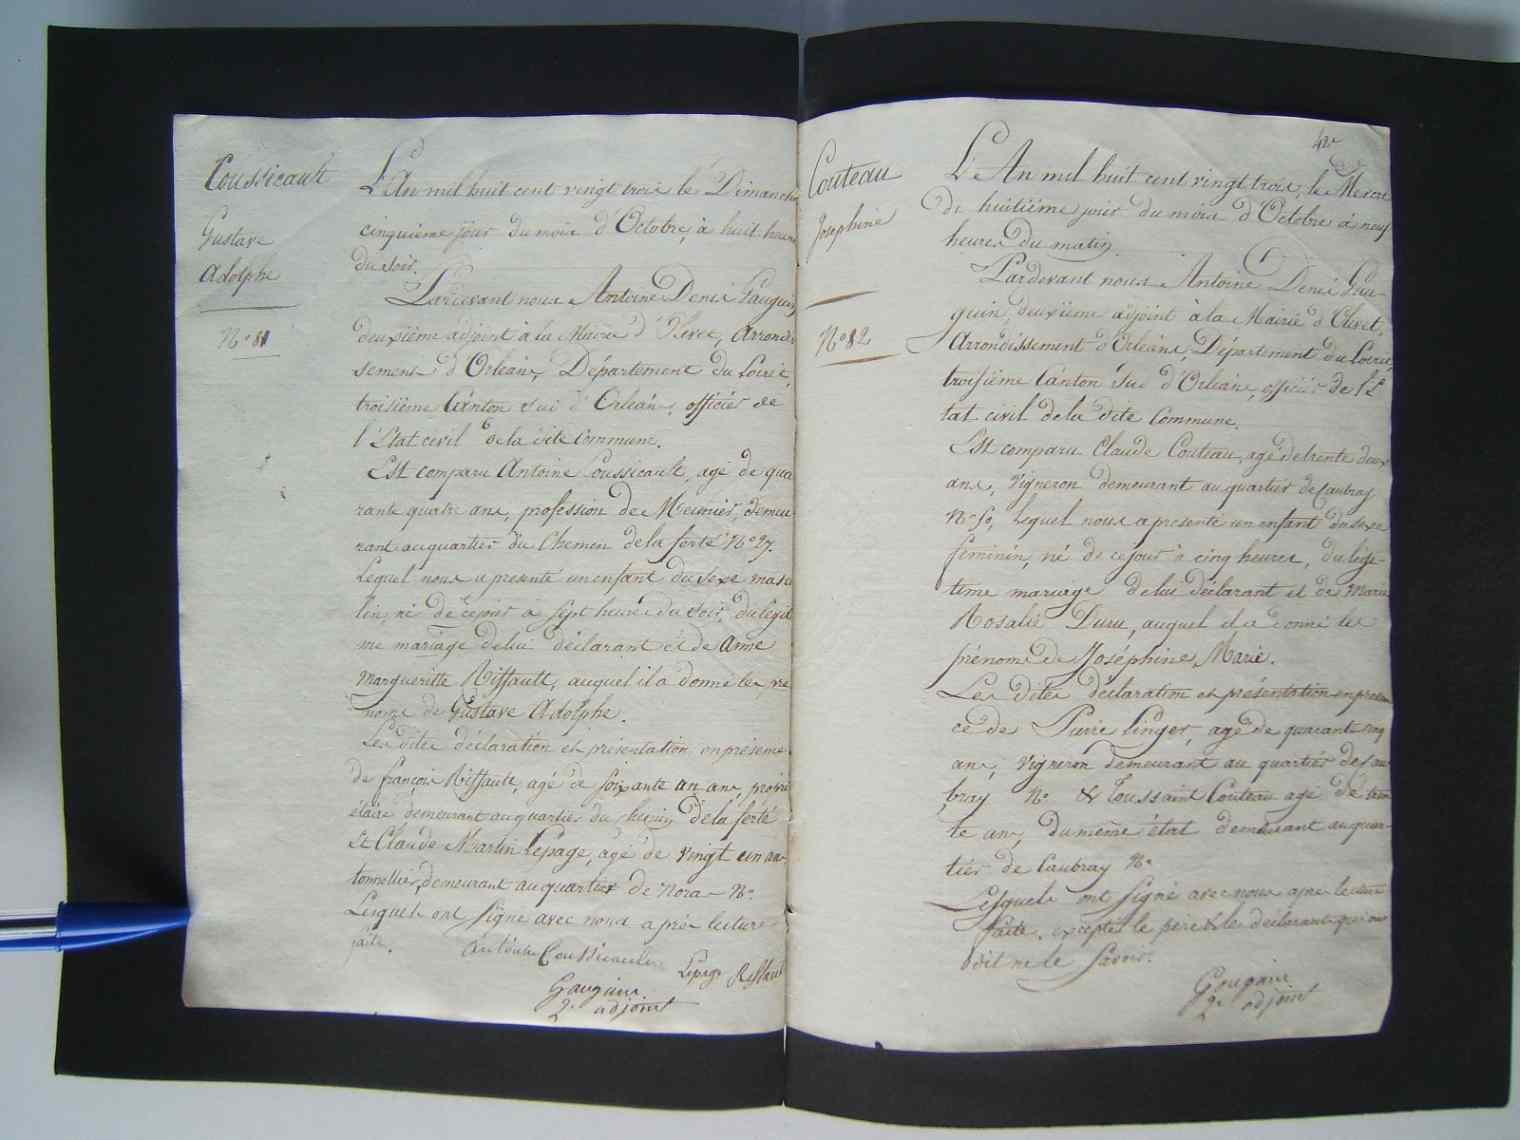 Coussicault
Gustave
Adolphe
N° 81
L'An mil huit cent vingt trois le Dimanche
cinquième jour du mois d'Octobre, à huit heures
du soir.
Pardevant nous Antoine Denis Gauguin
deuxième adjoint à la Mairie d'Olivet, Arrondis
sement d'Orléans, Département du Loiret,
troisième Canton sud d'Orléans, officier de
l'Etat civil de la dite Commune.
Est comparu Antoine Coussicault, agé de qua
rante quatre ans, profession de Meunier, demeu
rant au quartier du Chemin de la ferté N° 27.
Lequel nous a présenté un enfant du sexe mascu
lin, né de ce jour à sept heures du soir, du légiti
me mariage de lui déclarant et de Anne
Margueritte Riffault, auquel il a donné les pré
noms de Gustave Adolphe.
Les dites déclaration et présentation en présence
de françois Riffault, agé de soixante un ans, propri
étaire demeurant au quartier du chemin de la ferté
Et Claude Martin Lepage, agé de vingt un ans
tonnellier, demeurant au quartier de Nora N°
Lesquels ont signé avec nous après lecture
faite.
Antoine Coussicault
Lepage Riffault
Gauguin
2e adjoint
42
Couteau
Joséphine
N° 82
L'An mil huit cent vingt trois, le Mercre
di huitième jour du mois d'Octobre à neuf
heures du matin
Pardevant nous Antoine Denis Gau-
guin, deuxième adjoint à la Mairie d'Olivet,
Arrondissement d'Orléans, Département du Loiret,
troisième Canton Sud d'Orléans, officier de l'E
tat civil de la dite Commune.
Est comparu Claude Couteau, agé de trente deux
ans, vigneron demeurant au quartier de Caubray
N° 50, Lequel nous a présenté un enfant du sexe
féminin, né de ce jour à cinq heures, du légi-
time mariage de lui déclarant et de Marie
Rosalie Duru, auquel il a donné les
prénoms de Joséphine Marie.
Les dites déclaration et présentation en présen
ce de Pierre Linger, agé de quarante cinq
ans, vigneron demeurant au quartier de Cau
bray N° & Toussaint Couteau agé de tren
te ans, du même état demeurant au quar-
tier de Caubray N°
Lesquels ont signé avec nous après lecture
faite. excepté le père & le déclarant qui ont
dit ne le savoir.
Gauguin
2e adjoint